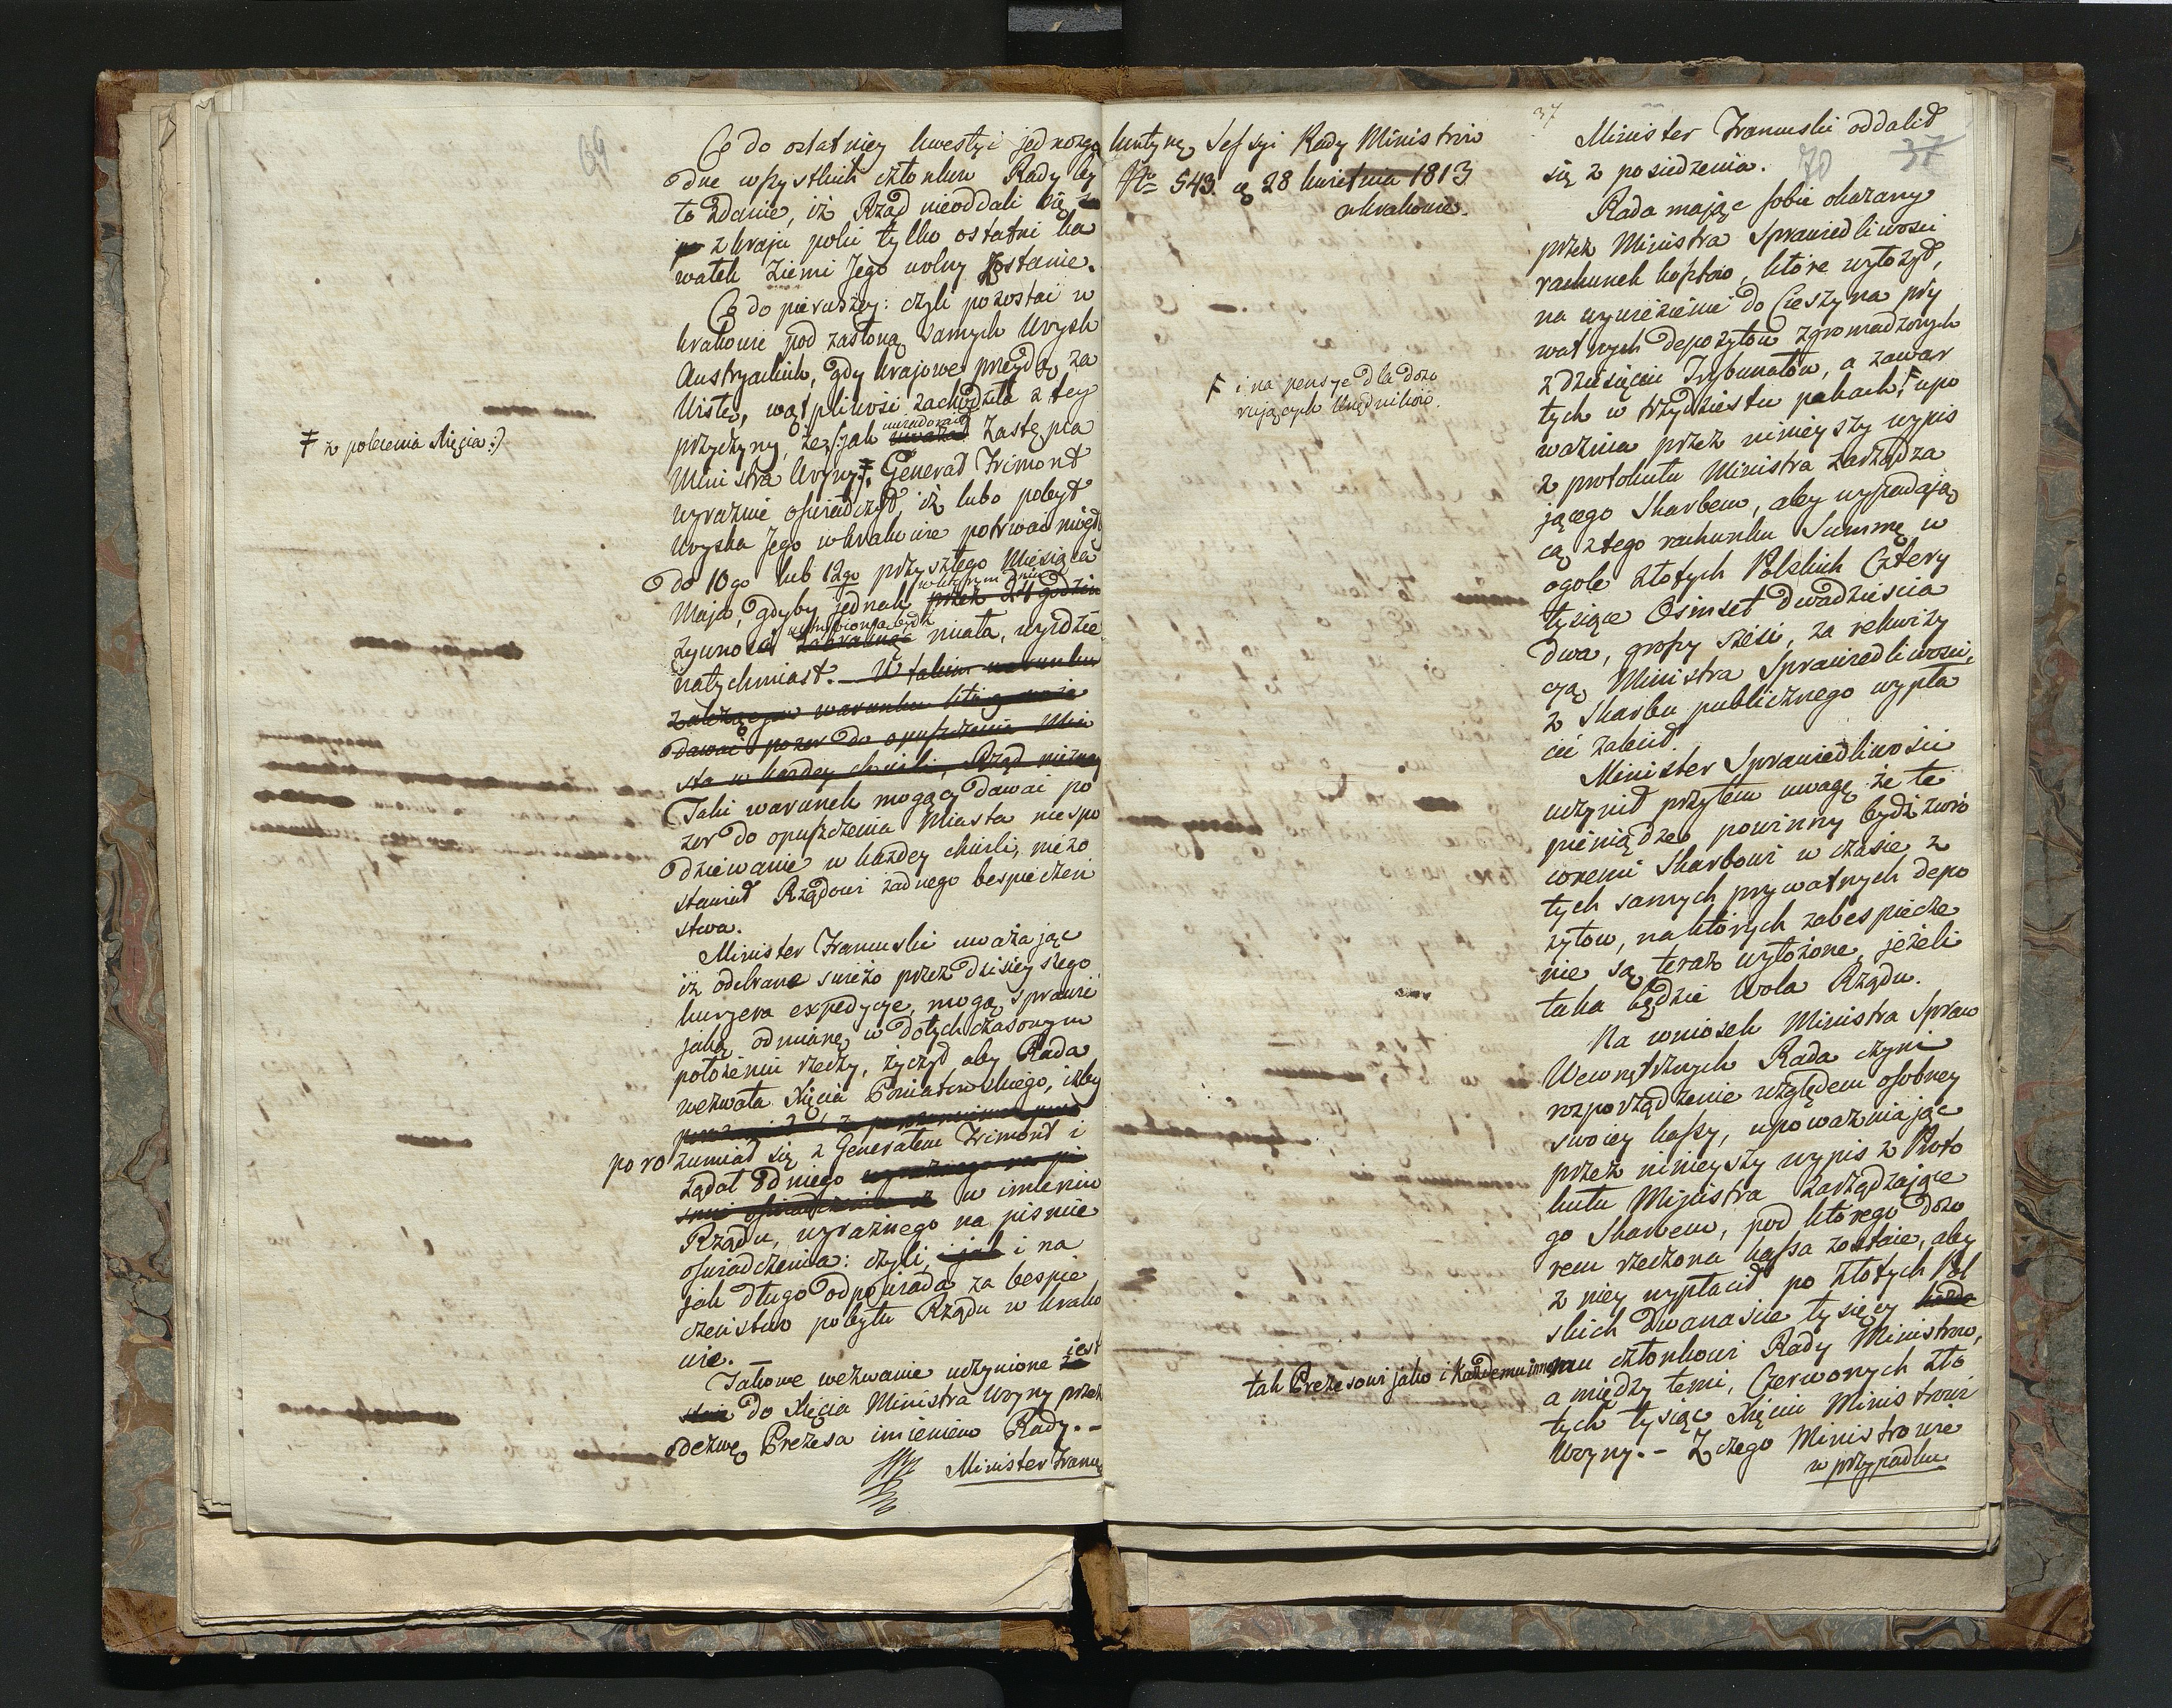 69
Co do ostatniey kwestyi jednozgo
dne wszystkich członków Rady by
ło zdanie, iż Rząd nieoddali się
z kraju poki tylko ostatni ka
wałek Ziemi Jego wolny zostanie.
Co do pierwszey: czyli pozostać w
Krakowie pod zasłoną samych Woysk
Austryackich, gdy krajowe przeydą za
Wisłę, wątpliwość zachodziła z tey
przyczyny, że (jak uwiadomił Zastępca
Ministra Woyny ǂ, Generał Frimont
ǂ z polecenia Xięcia:)
wyraźnie oświadczył, iż lubo pobyt
Woyska Jego w Krakowie potrwać może
do 10go lub 12go przyszłego Miesiąca
Maja, gdyby jednak przez 24 godzin
żywność miała, wyidzie
natychmiast. W takim warunku
dawać pozor do opuszczenia Mia
sta w każdey chwili, Rząd
Taki warunek mogący dawać po
zor do opuszczenia Miasta niespo
dziewanie w każdey chwili, niezo
stawiał Rządowi żadnego bespieczeń
stwa.
Minister Franuski uważając
iż odebrane swieżo przez dzisieyszego
kuryera expedycye, mogą sprawić
jaką odmianę w dotychczasowym
położeniu rzeczy, życzył aby Rada
wezwała Xięcia Poniatowskiego, iżby
porozumiał się z Generałem Frimont i
żądał od niego wyraźnego na pi
śmie oświadczenia w imieniu
Rządu, wyraźnego na piśmie
oświadczenia: czyli, i jak i na
jak długo odpowiada za bespie
czeństwo pobytu Rządu w Krako
wie. —
Takowe wezwanie uczynione jest
do Xięcia Ministra Woyny przez
odezwę Prezesa imieniem Rady. —
Minister Franu
kontynu. Sessyi Rady Ministrów
Nro 543. z 28 kwietnia 1813
w Krakowie.
37
70
37
Minister Franuski oddalił
się z posiedzenia.
Rada mając sobie okazany
przez Ministra Sprawiedliwości
rachunek kosztów, które wyłożył,
na wywiezienie do Cieszyna pry
watnych depozytów zgromadzonych
z dziesięciu Trybunałów, a zawar
tych w trzydziestu pakach, F upo
F i na pensye dla dozo
rujących Urzędników.
ważnia przez ninieyszy wypis
z protokułu Ministra zarządza
jącego Skarbem, aby wypadają
cą z tego rachunku Summę w
ogole złotych Polskich Cztery
tysiące Ośmset dwadzieścia
dwa, groszy sześć, za rekwizy
cyą Ministra Sprawiedliwości,
z Skarbu publicznego wypła
cić zalecił.
Minister Sprawiedliwości
uczynił przytem uwagę że te
pieniądze powinny bydź zwró
conemi Skarbowi w czasie z
tych samych prywatnych depo
zytow, na których zabespiecze
nie są teraz wyłożone, jeżeli
taka będzie Wola Rządu.
Na wniosek Ministra Spraw
Wewnętrznych Rada czyni
rozporządzenie względem osobney
swoiey kassy, upoważniając
przez ninieyszy wypis z Proto
kułu Ministra zarządzające
go Skarbem, pod którego dozo
rem rzeczona kassa zostaie, aby
z niey wypłacił po złotych Pol
skich dwanaście tysięcy każde
tak Prezesowi jako i każdemu innemu członkowi Rady Ministrów,
a między temi, Czerwonych zło
tych tysiąc Xięciu Ministrowi
Woyny. — Z czego Ministrowie
w przypadku